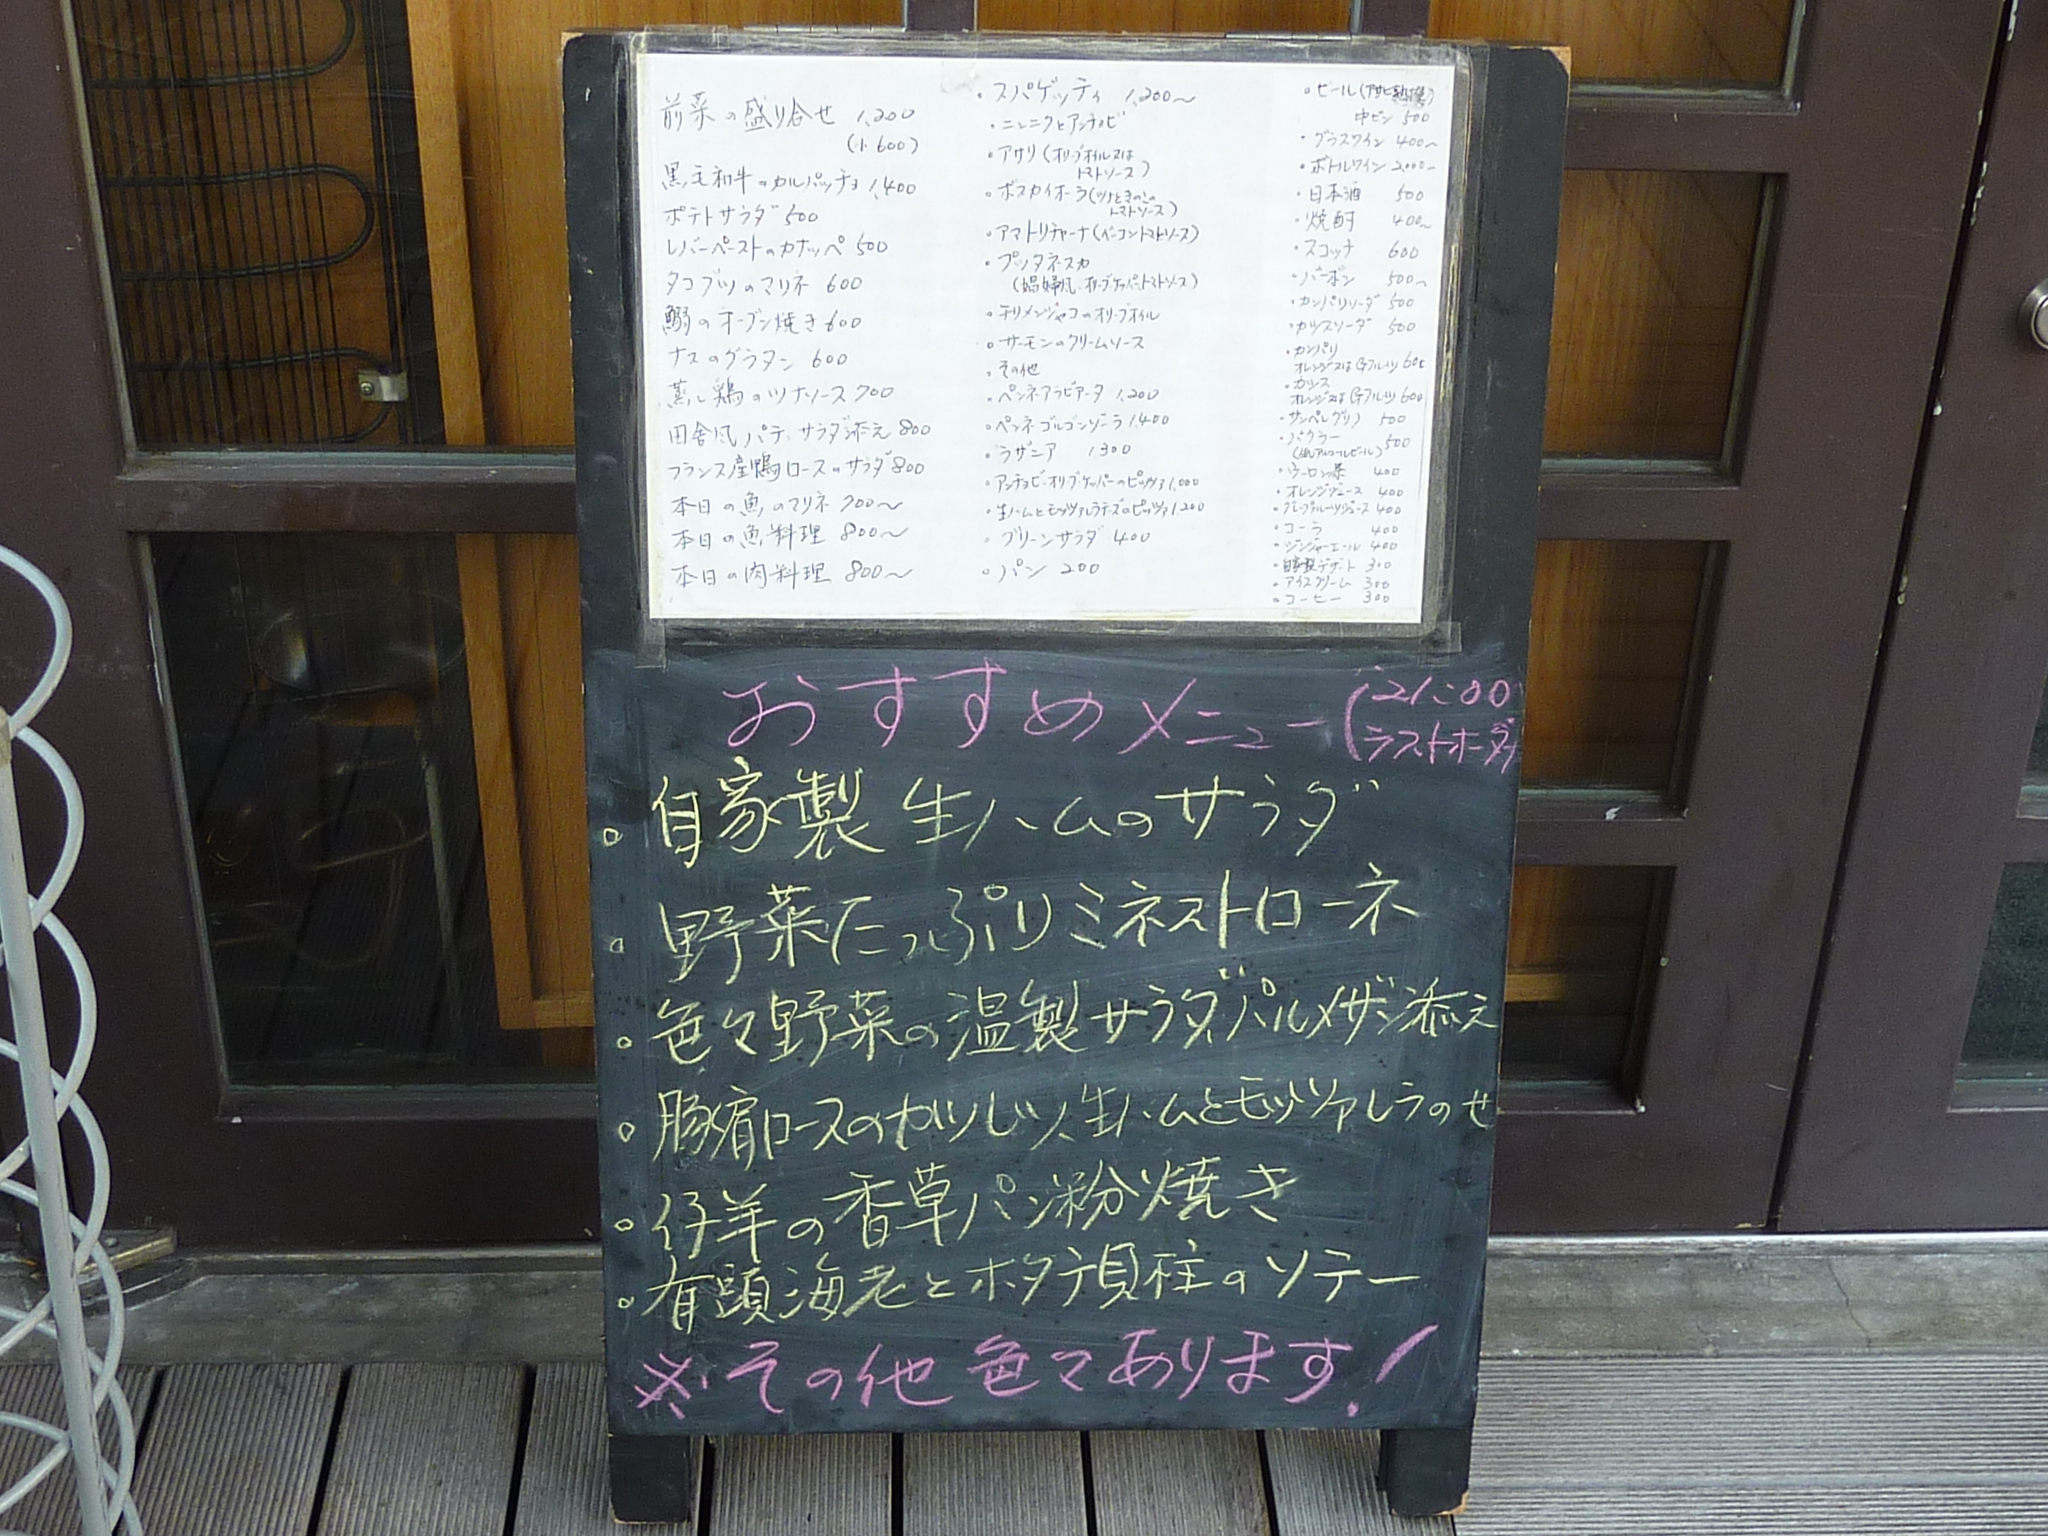 前菜の盛り合せ 1,200
(小 600)
黒毛和牛のカルパッチョ 1,400
ポテトサラダ 500
レバーペーストのカナッペ 500
タコブツのマリネ 600
鰯のオーブン焼き 600
ナスのグラタン 600
蒸し鶏のツナソース 700
田舎風パテ、サラダ添え 800
フランス産鴨ロースのサラダ 800
本日の魚のマリネ 700〜
本日の魚料理 800〜
本日の肉料理 800〜
・スパゲッティ 1,200〜
・ニンニクとアンチョビ
・アサリ(オリーブオイル又は
トマトソース)
・ボスカイオーラ(ツナときのこの
トマトソース)
・アマトリチャーナ(ベーコントマトソース)
・プッタネスカ
(娼婦風、オリーブケッパートマトソース)
・チリメンジャコのオリーブオイル
・サーモンのクリームソース
・その他
・ペンネアラビアータ 1,200
・ペンネゴルゴンゾーラ 1,400
・ラザニア 1,300
・アンチョビ・オリーブ・ケッパーのピッツァ 1,000
・生ハムとモッツァレラチーズのピッツァ 1,200
・グリーンサラダ 400
・パン 200
・ビール(アサヒ
中ビン 500
・グラスワイン 400〜
・ボトルワイン 2,000〜
・日本酒 500
・焼酎 400〜
・スコッチ 600
・バーボン 500〜
・カンパリソーダ 500
・カシスソーダ 500
・カンパリ
オレンジ又はGフルーツ 600
・カシス
オレンジ又はGフルーツ 600
・サンペレグリノ 500
・バクラー 500
(低アルコールビール)
・ウーロン茶 400
・オレンジジュース 400
・グレープフルーツジュース 400
・コーラ 400
・ジンジャーエール 400
・自家製デザート 300
・アイスクリーム 300
・コーヒー 300
おすすめメニュー(21:00
ラストオーダー
。自家製生ハムのサラダ
。野菜たっぷりミネストローネ
。色々野菜の温製サラダ、パルメザン添え
。豚肩ロースのカツレツ、生ハムとモッツァレラのせ
。仔羊の香草パン粉焼き
。有頭海老とホタテ貝柱のソテー
※その他色々あります!